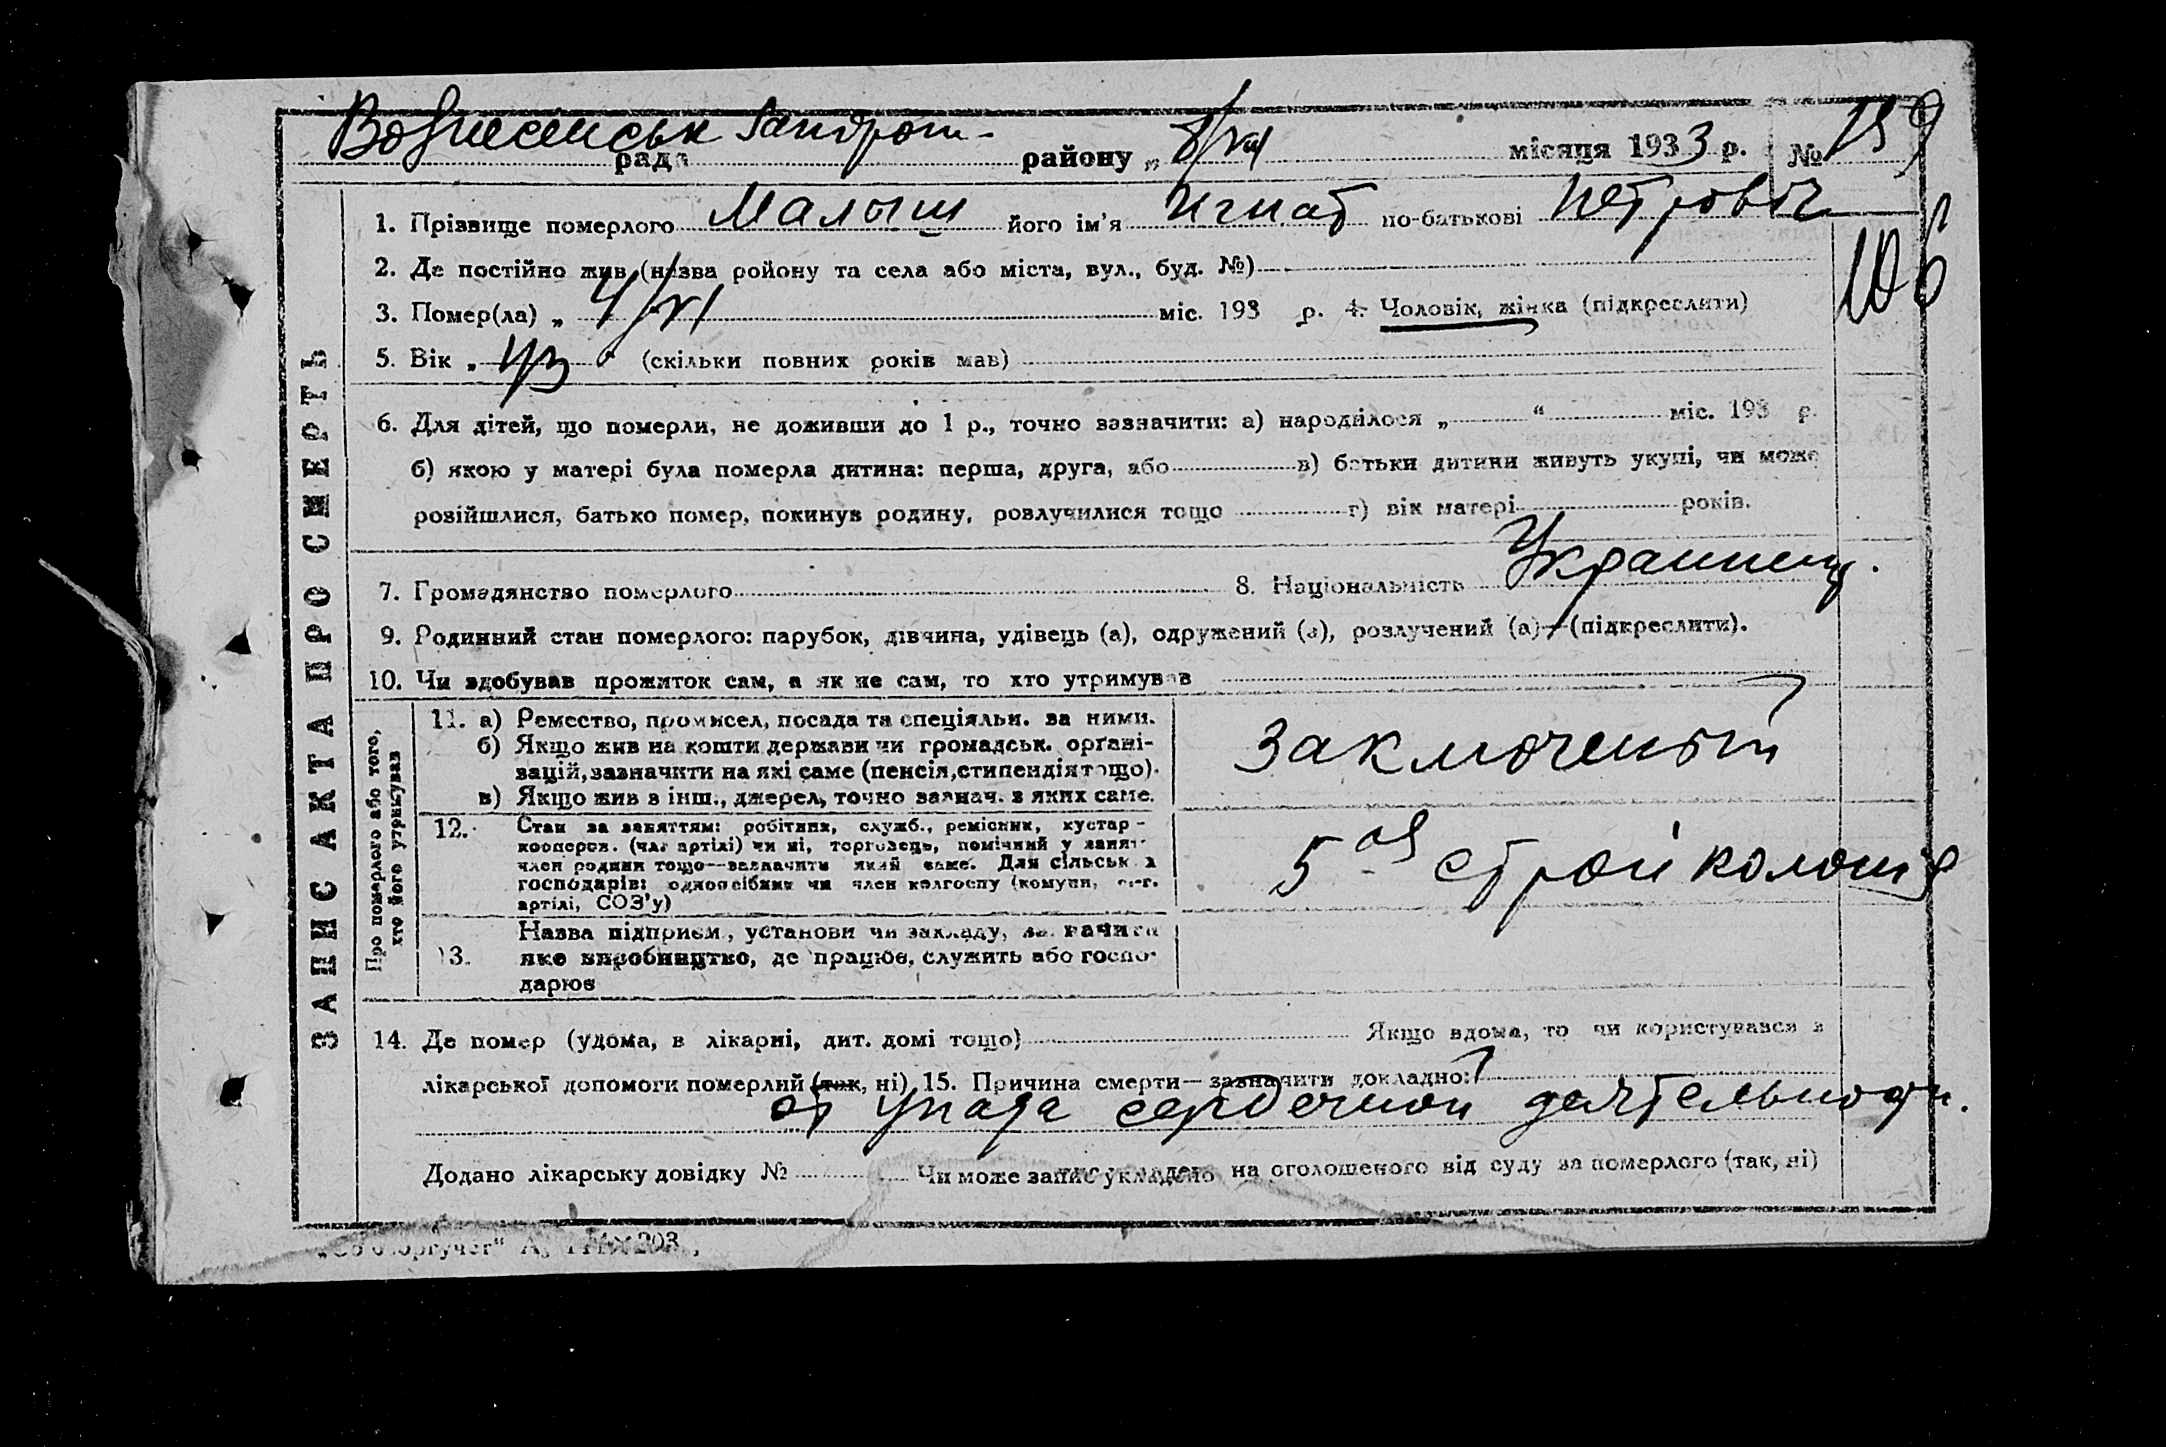 Вознесенськ Запорож-
рада району „ 8/VII місяця 1933 р. № 159
1. Прізвище померлого Малыш його ім'я Игнат по-батькові Петрович
2. Де постійно жив (назва ройону та села або міста, вул., буд. №)
3. Помер(ла) „ 4/VI міс. 193 р. 4. Чоловік, жінка (підкреслити)
5. Вік „ 43 " (скільки повних років мав)
6. Для дітей, що померли, не доживши до 1 р., точно зазначити: а) народилося „ " міс. 193 р.
б) якою у матері була померла дитина: перша, друга, або в) батьки дитини живуть укупі, чи може
розійшлися, батько помер, покинув родину, розлучилися тощо г) вік матері років.
7. Громадянство померлого 8. Національність Украинец.
9. Родинний стан померлого: парубок, дівчина, удівець (а), одружений (а), розлучений (а)—(підкреслити).
10. Чи здобував прожиток сам, а як не сам, то хто утримував
ЗАПИС АКТА ПРО СМЕРТЬ
Про померлого або того,
хто його утримував
11. а) Ремество, промисел, посада та спеціяльн. за ними.
б) Якщо жив на кошти держави чи громадськ. органі-
зацій, зазначити на які саме (пенсія, стипендія тощо).
в) Якщо жив з інш., джерел, точно зазнач. з яких саме.
Заключеный
12. Стан за заняттям: робітник, служб., ремісник, кустар-
кооперов. (член артілі) чи ні, торговець, помічний у занят.
член родини тощо—зазначити який саме. Для сільськ. х
господарів: одноосібник чи член колгоспу (комуни, с.-г.
артілі, СОЗ'у)
5ая стройколония
13. Назва підприєм., установи чи закладу, зазначити
яке виробництво, де працює, служить або госпо-
дарює
14. Де помер (удома, в лікарні, дит. домі тощо) Якщо вдома, то чи користувався з
лікарської допомоги померлий (так, ні) 15. Причина смерти—зазначити докладно:
от упада сердечной деятельности.
Додано лікарську довідку № Чи може запис укладено на оголошеного від суду за померлого (так, ні)